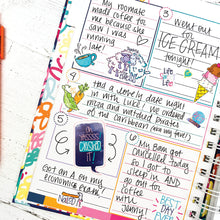 My roommate
made coffee for
me because she
saw I was
running
late!
3
Went out
for
ICE CREAM
tonight!
4
Had a lovely date night
in with Luke! We ordered
pizza and watched Pirates
of the Caribbean
5
OH
CRUSHED
IT!
Got an A on my
economics exam!
NAILED IT
6
My 8am got
cancelled today
So I got to
sleep in AND
go out for
coffee
with
Jenny!
BEST